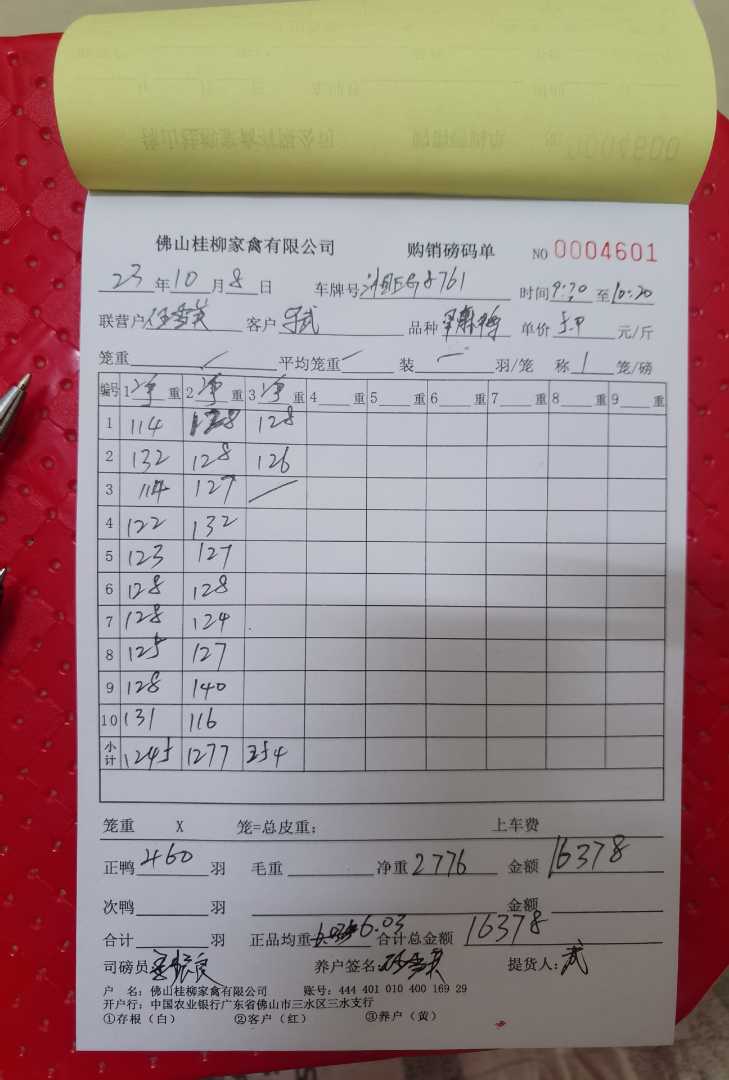 佛山桂柳家禽有限公司 购销磅码单 NO 0004601
23年10月8日 车牌号 8761 时间9:20至10:20
联营户 客户 武 品种 单价 元/斤
笼重 / 平均笼重 一 装 一 羽/笼 称 1 笼/磅
编号 1净重 2净重 3净重 4重 5重 6重 7重 8重 9重
1 114 128 128
2 132 128 126
3 114 127 /
4 122 132
5 123 127
6 128 128
7 128 124
8 125 127
9 128 140
10 131 116
小计 1245 1277 254
笼重 X 笼=总皮重: 上车费
正鸭 460 羽 毛重 净重 2776 金额 16378
次鸭 羽 金额
合计 羽 正品均重 6.03 合计总金额 16378
司磅员: 养户签名: 提货人: 武
户 名: 佛山桂柳家禽有限公司 账号: 444 401 010 400 169 29
开户行: 中国农业银行广东省佛山市三水区三水支行
①存根(白) ②客户(红) ③养户(黄)